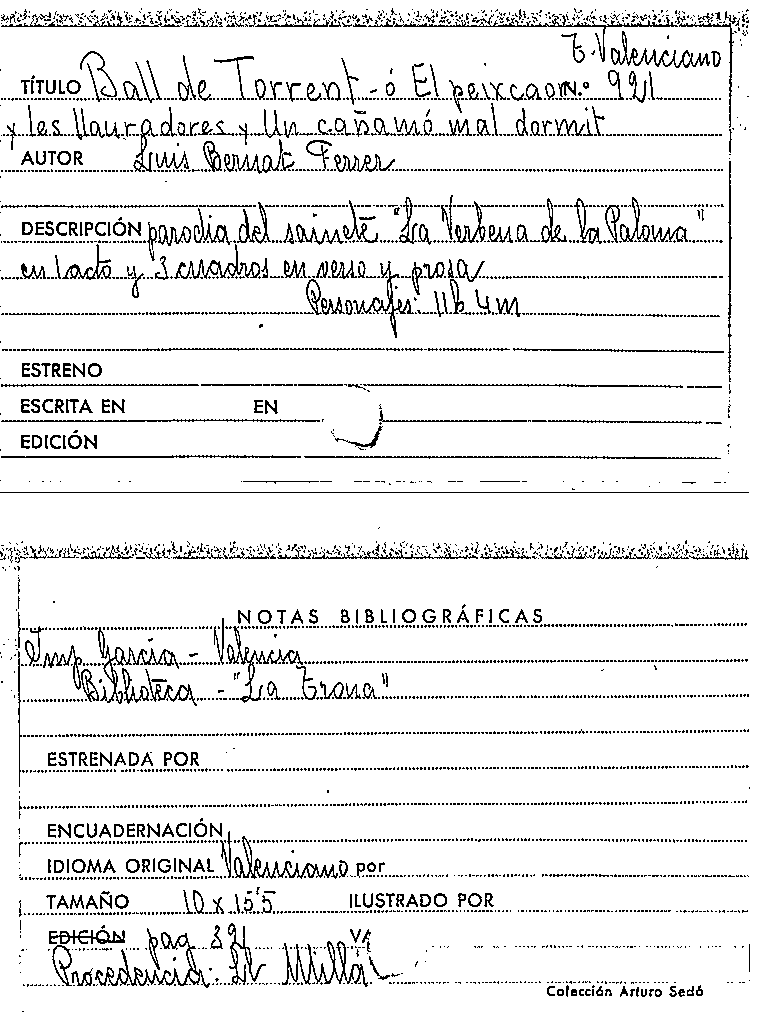 T. Valenciano
TÍTULO Ball de Torrent - ó El peixcaor N.º 921
y les llauradores y Un cañamó mal dormit
AUTOR Luis Bernat Ferrer
DESCRIPCIÓN parodia del sainete "La Verbena de la Paloma"
en 1 acto y 3 cuadros en verso y prosa
Personajes: 11 h 4 m
ESTRENO
ESCRITA EN EN
EDICIÓN
NOTAS BIBLIOGRÁFICAS
Imp García - Valencia
Biblioteca - "La Trona"
ESTRENADA POR
ENCUADERNACIÓN
IDIOMA ORIGINAL Valenciano por
TAMAÑO 10 x 15'5 ILUSTRADO POR
EDICIÓN pag 32
Procedencia: Ll Millá
Colección Arturo Sedó